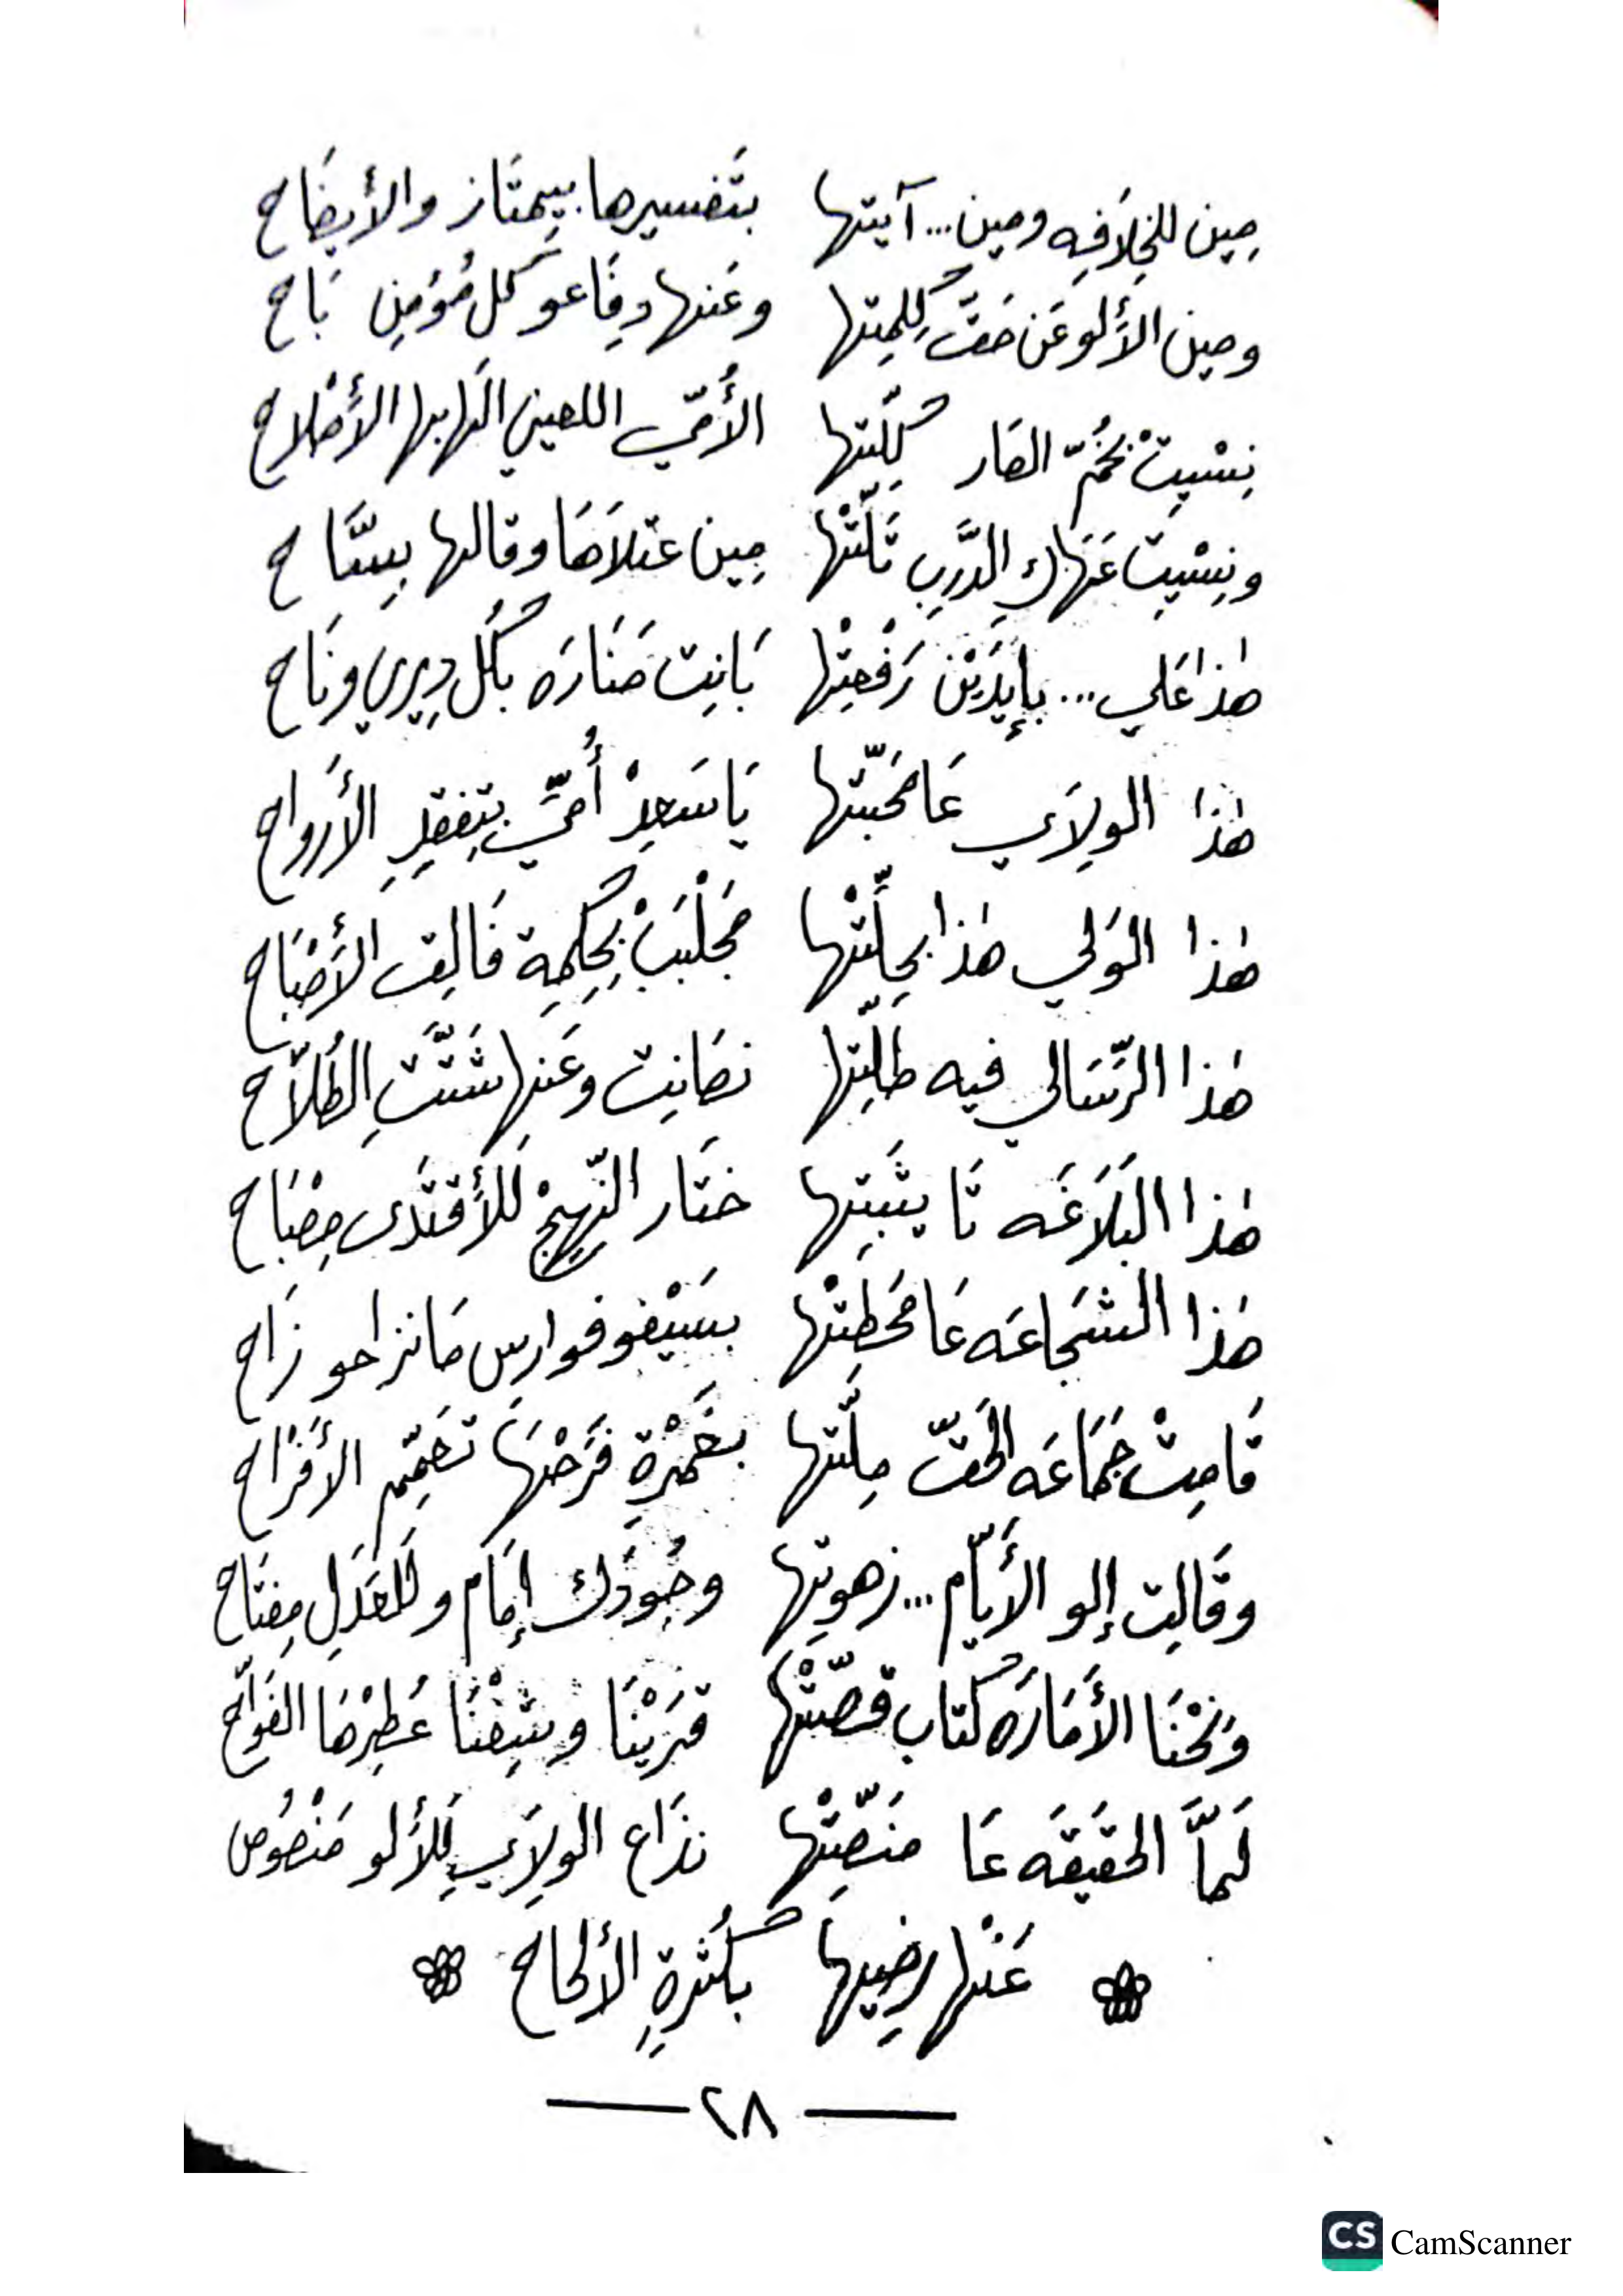 مِين للخِلَافِه ومين... آيتها بتَفسيرها بيِمتَاز والأيضَاح
ومين الأَلو عَن حَقّ كِلمِتها وعَنها دِفَاعو كَل مُؤمِن بَاح
نِسْيِتْ بخُمّ الصَار كِلّتها الأُمّي اللعين الَها بها الأَصْلاح
ونِسْيِت عَنَها الدَّرَبِ تَلّتْها مِين عتلاَهَا وقالها بِسمَّاح
هٰذا عَلي... بإيدَيْن رَفْعِتْها بَانِت مَنَارَه بكُل دِيري ونَاح
هٰذا الولِاَي عَا محَبّتها يَا سَعِدْ أُمّي بتِفقِدِ الأَرواح
هٰذا الوَلي هٰذا بحِلّتْها مجَلْبَبْ بِحِكِمِة فَالِق الأَصْبَاح
هٰذا الرّسَالي فيه طلِّتها نصَانِت وعَنِها شَتَّتِ الطُلاَّح
هٰذا البَلَاغَه تَا يثَبِتها ختَار النّهِجْ لَلأَقتَدى مِصْبَاح
هَذا الشجَاعَه عَا محَطِتْها بسَيْفو فوارس مَا نزاحو زَاح
قَامِتْ جمَاعَه الحَقّ مِلَّتها بغَمْرَةِ فَرَحْهَا تعَمِّم الأَفرَاح
وقَالِت إلو الأَيّام... زهوِتها وجُودَك إمَام وللعَدَلِ مِفتَاح
ونَحْنَا الأَمَارَه كتاب قصّتْها قرَيْنَا وشِفْنَا عُطِرْهَا الفَوّاح
لَمَّا الحَقيقَه عَا منَصِّتْها نذَاع الولِاَي لَلأَلو مَنْصُوص
عَنْها رضِيها بكُثرةِ الألحاح
٢٨
CS CamScanner